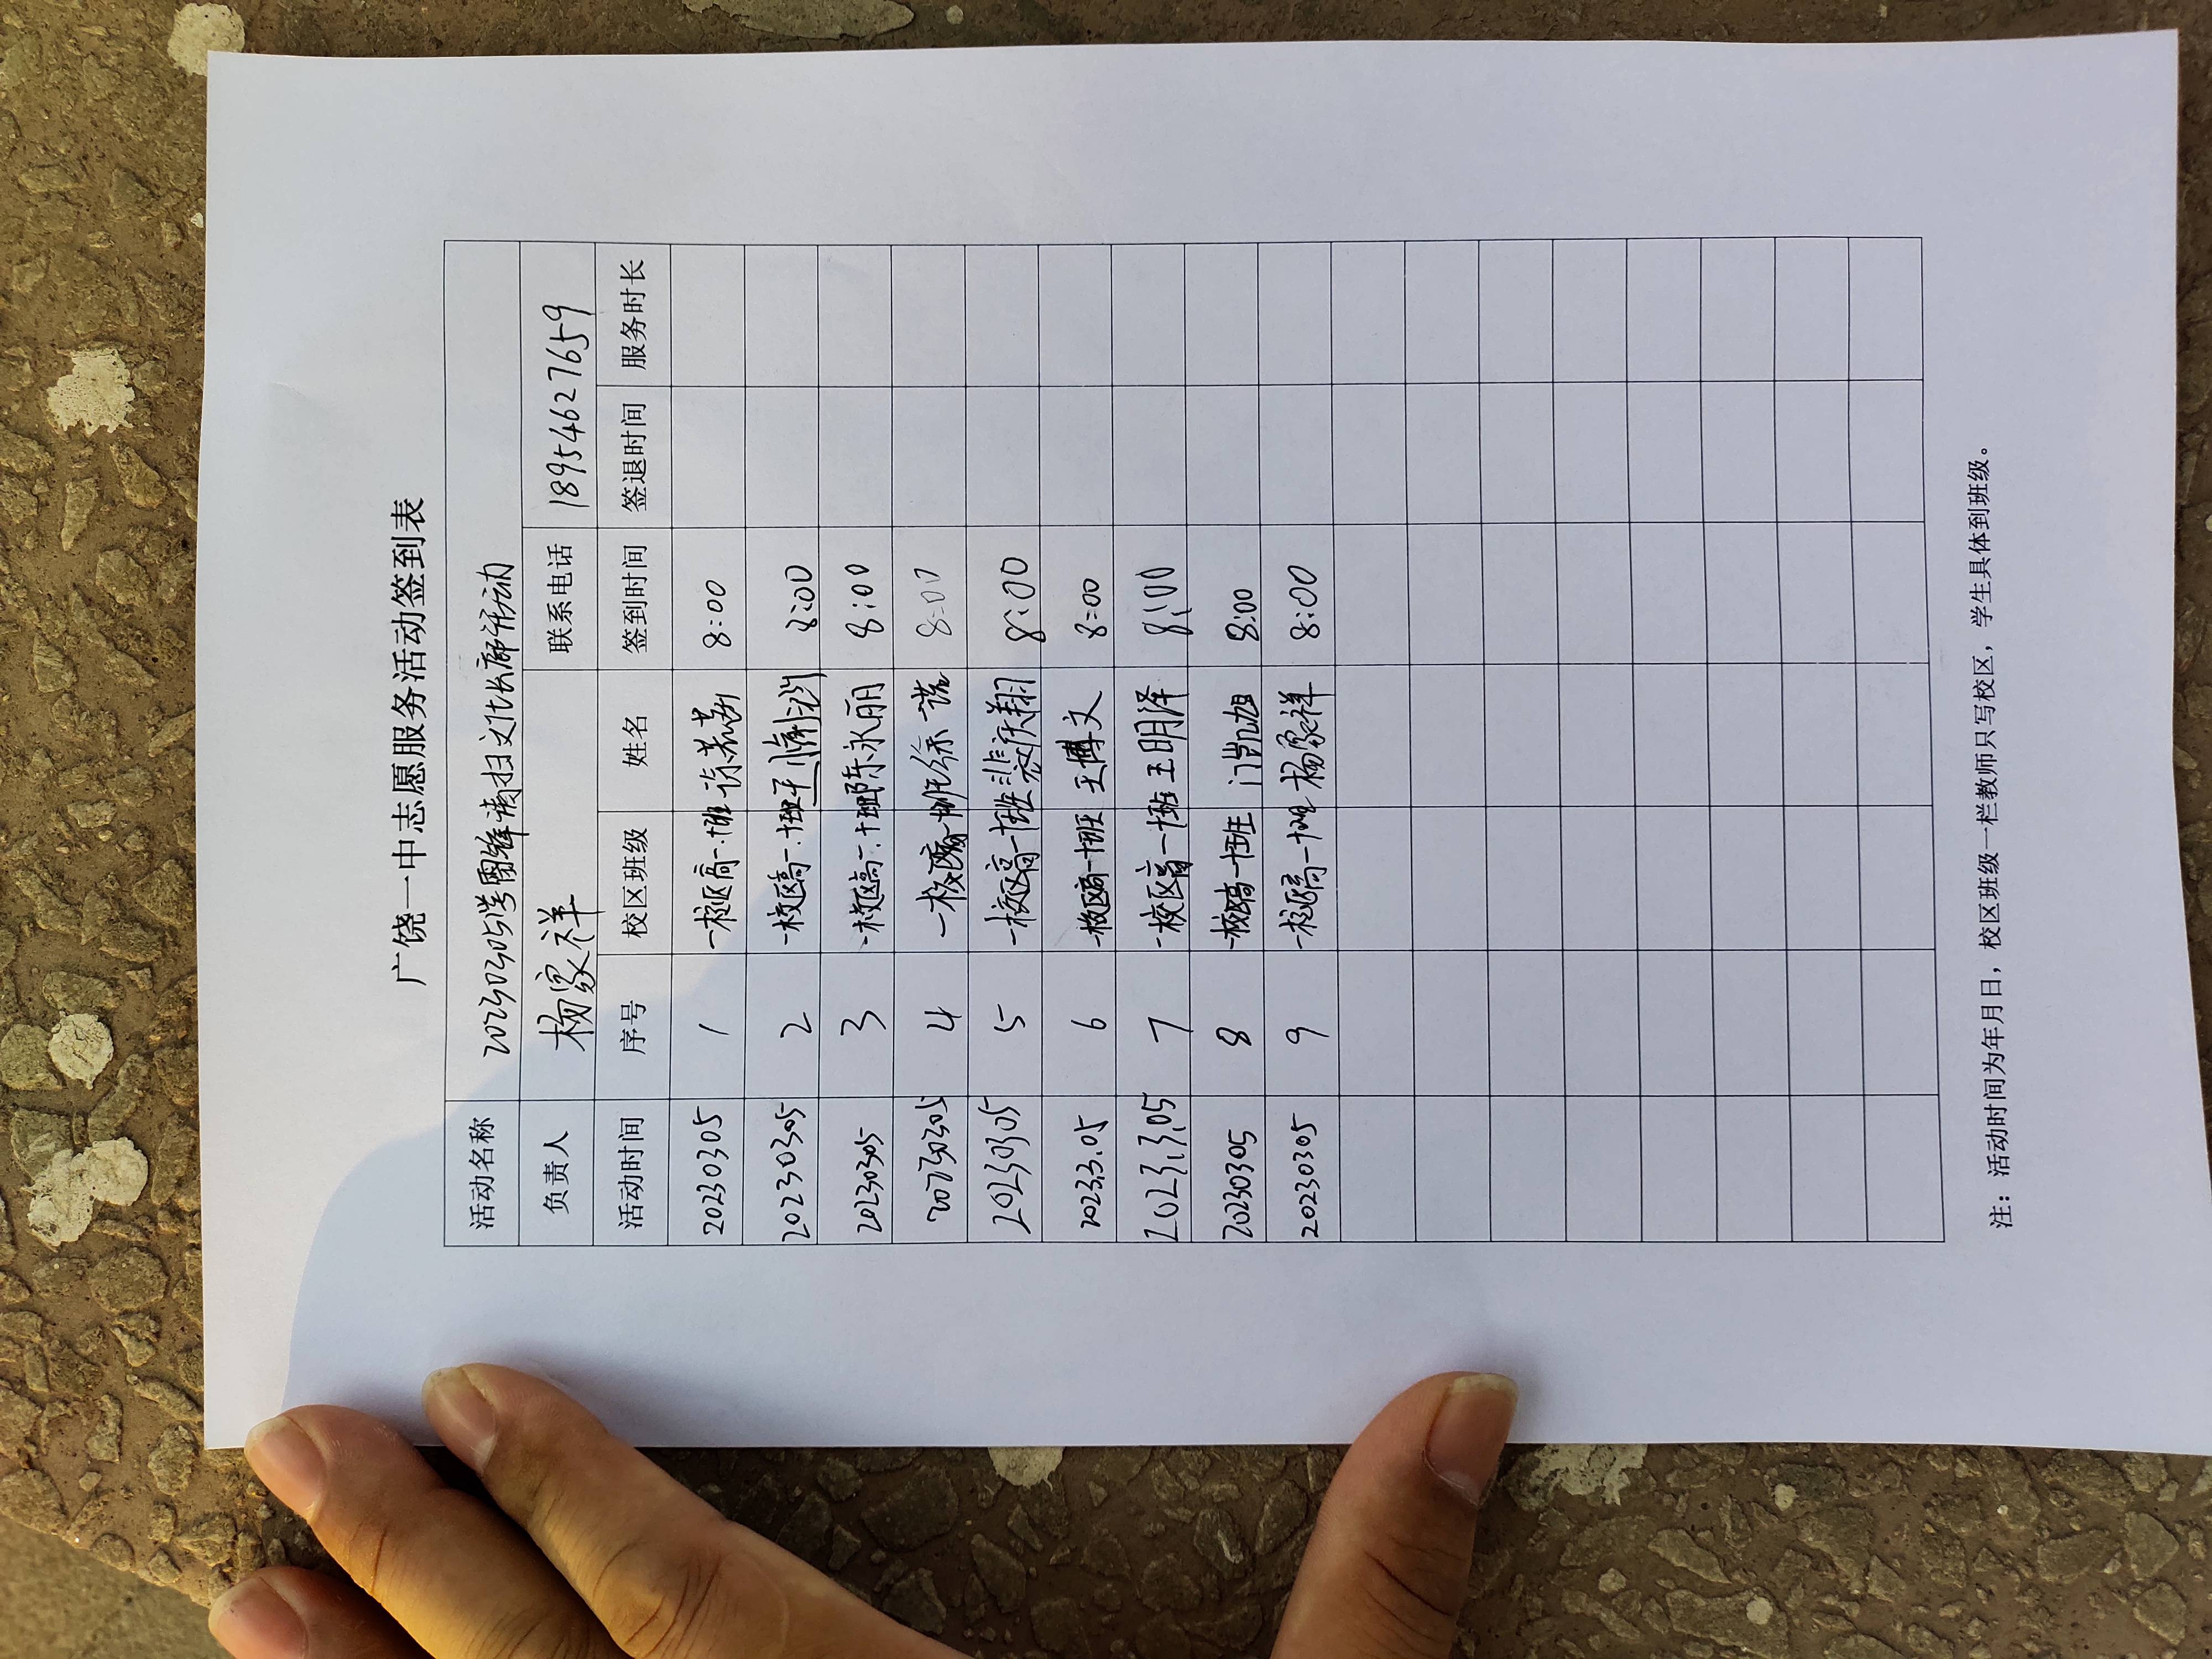 广饶一中志愿服务活动签到表
活动名称 20230305学雷锋清扫文化长廊活动
负责人 杨家祥 联系电话 18954627659
活动时间 序号 校区班级 姓名 签到时间 签退时间 服务时长
20230305 1 一校区高一.十班 8:00
20230305 2 一校区高一.十班 8:00
20230305 3 一校区高一.十班 陈永丽 8:00
20230305 4 一校区高一十班 徐诺 8:00
20230305 5 一校区高一十班 8:00
2023.3.05 6 一校区高一十班 王博文 8:00
2023.3.05 7 一校区高一十班 王明泽 8:00
20230305 8 一校区高一十班 门凯旭 8:00
20230305 9 一校区高一十班 杨家祥 8:00
注：活动时间为年月日，校区班级一栏教师只写校区，学生具体到班级。